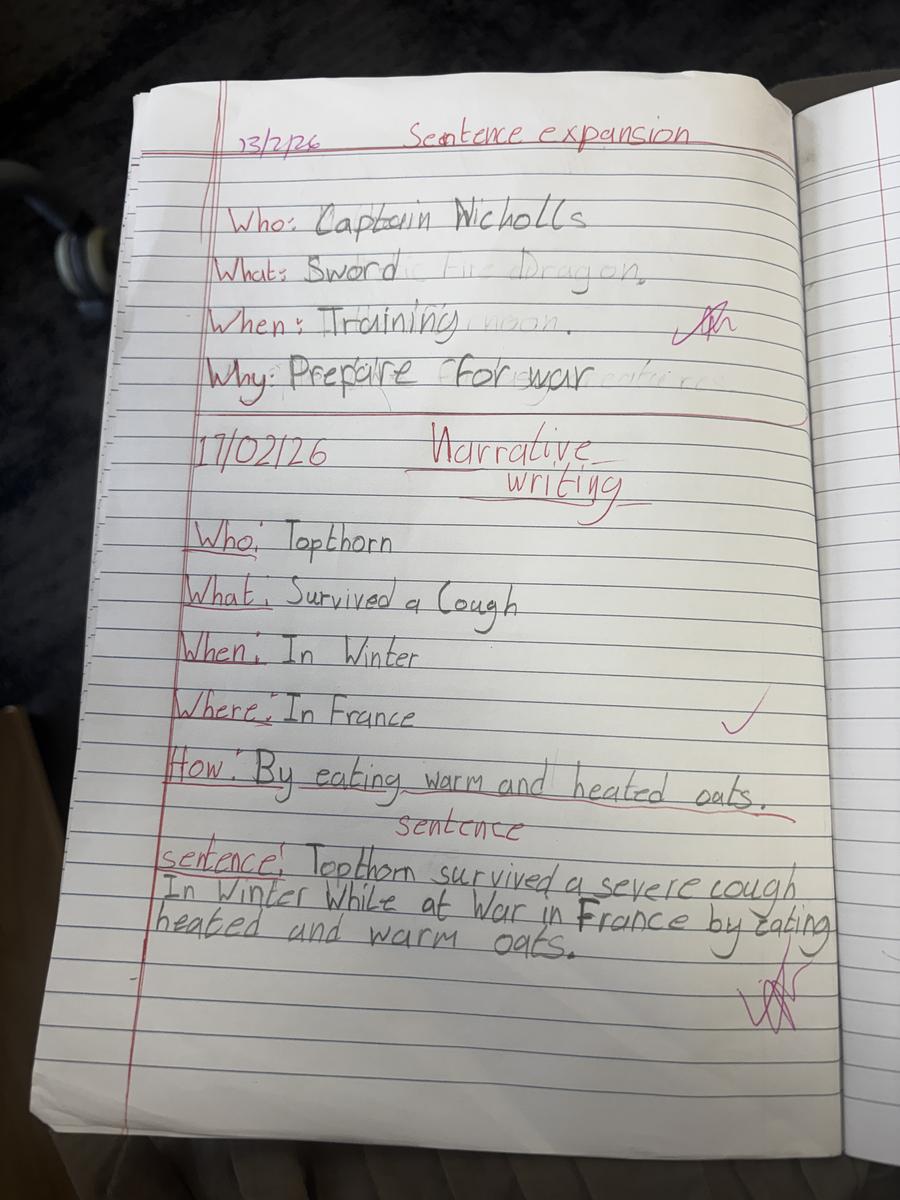 13/2/26 Sentence expansion
Who: Captain Nicholls
What: Sword Dragon.
When: Training noon.
Why: Prepare for war
17/02/26 Narrative
writing
Who: Topthorn
What: Survived a Cough
When: In Winter
Where: In France
How: By eating warm and heated oats.
sentence
sentence: Topthorn survived a severe cough
In Winter While at War in France by Eating
heated and warm oats.